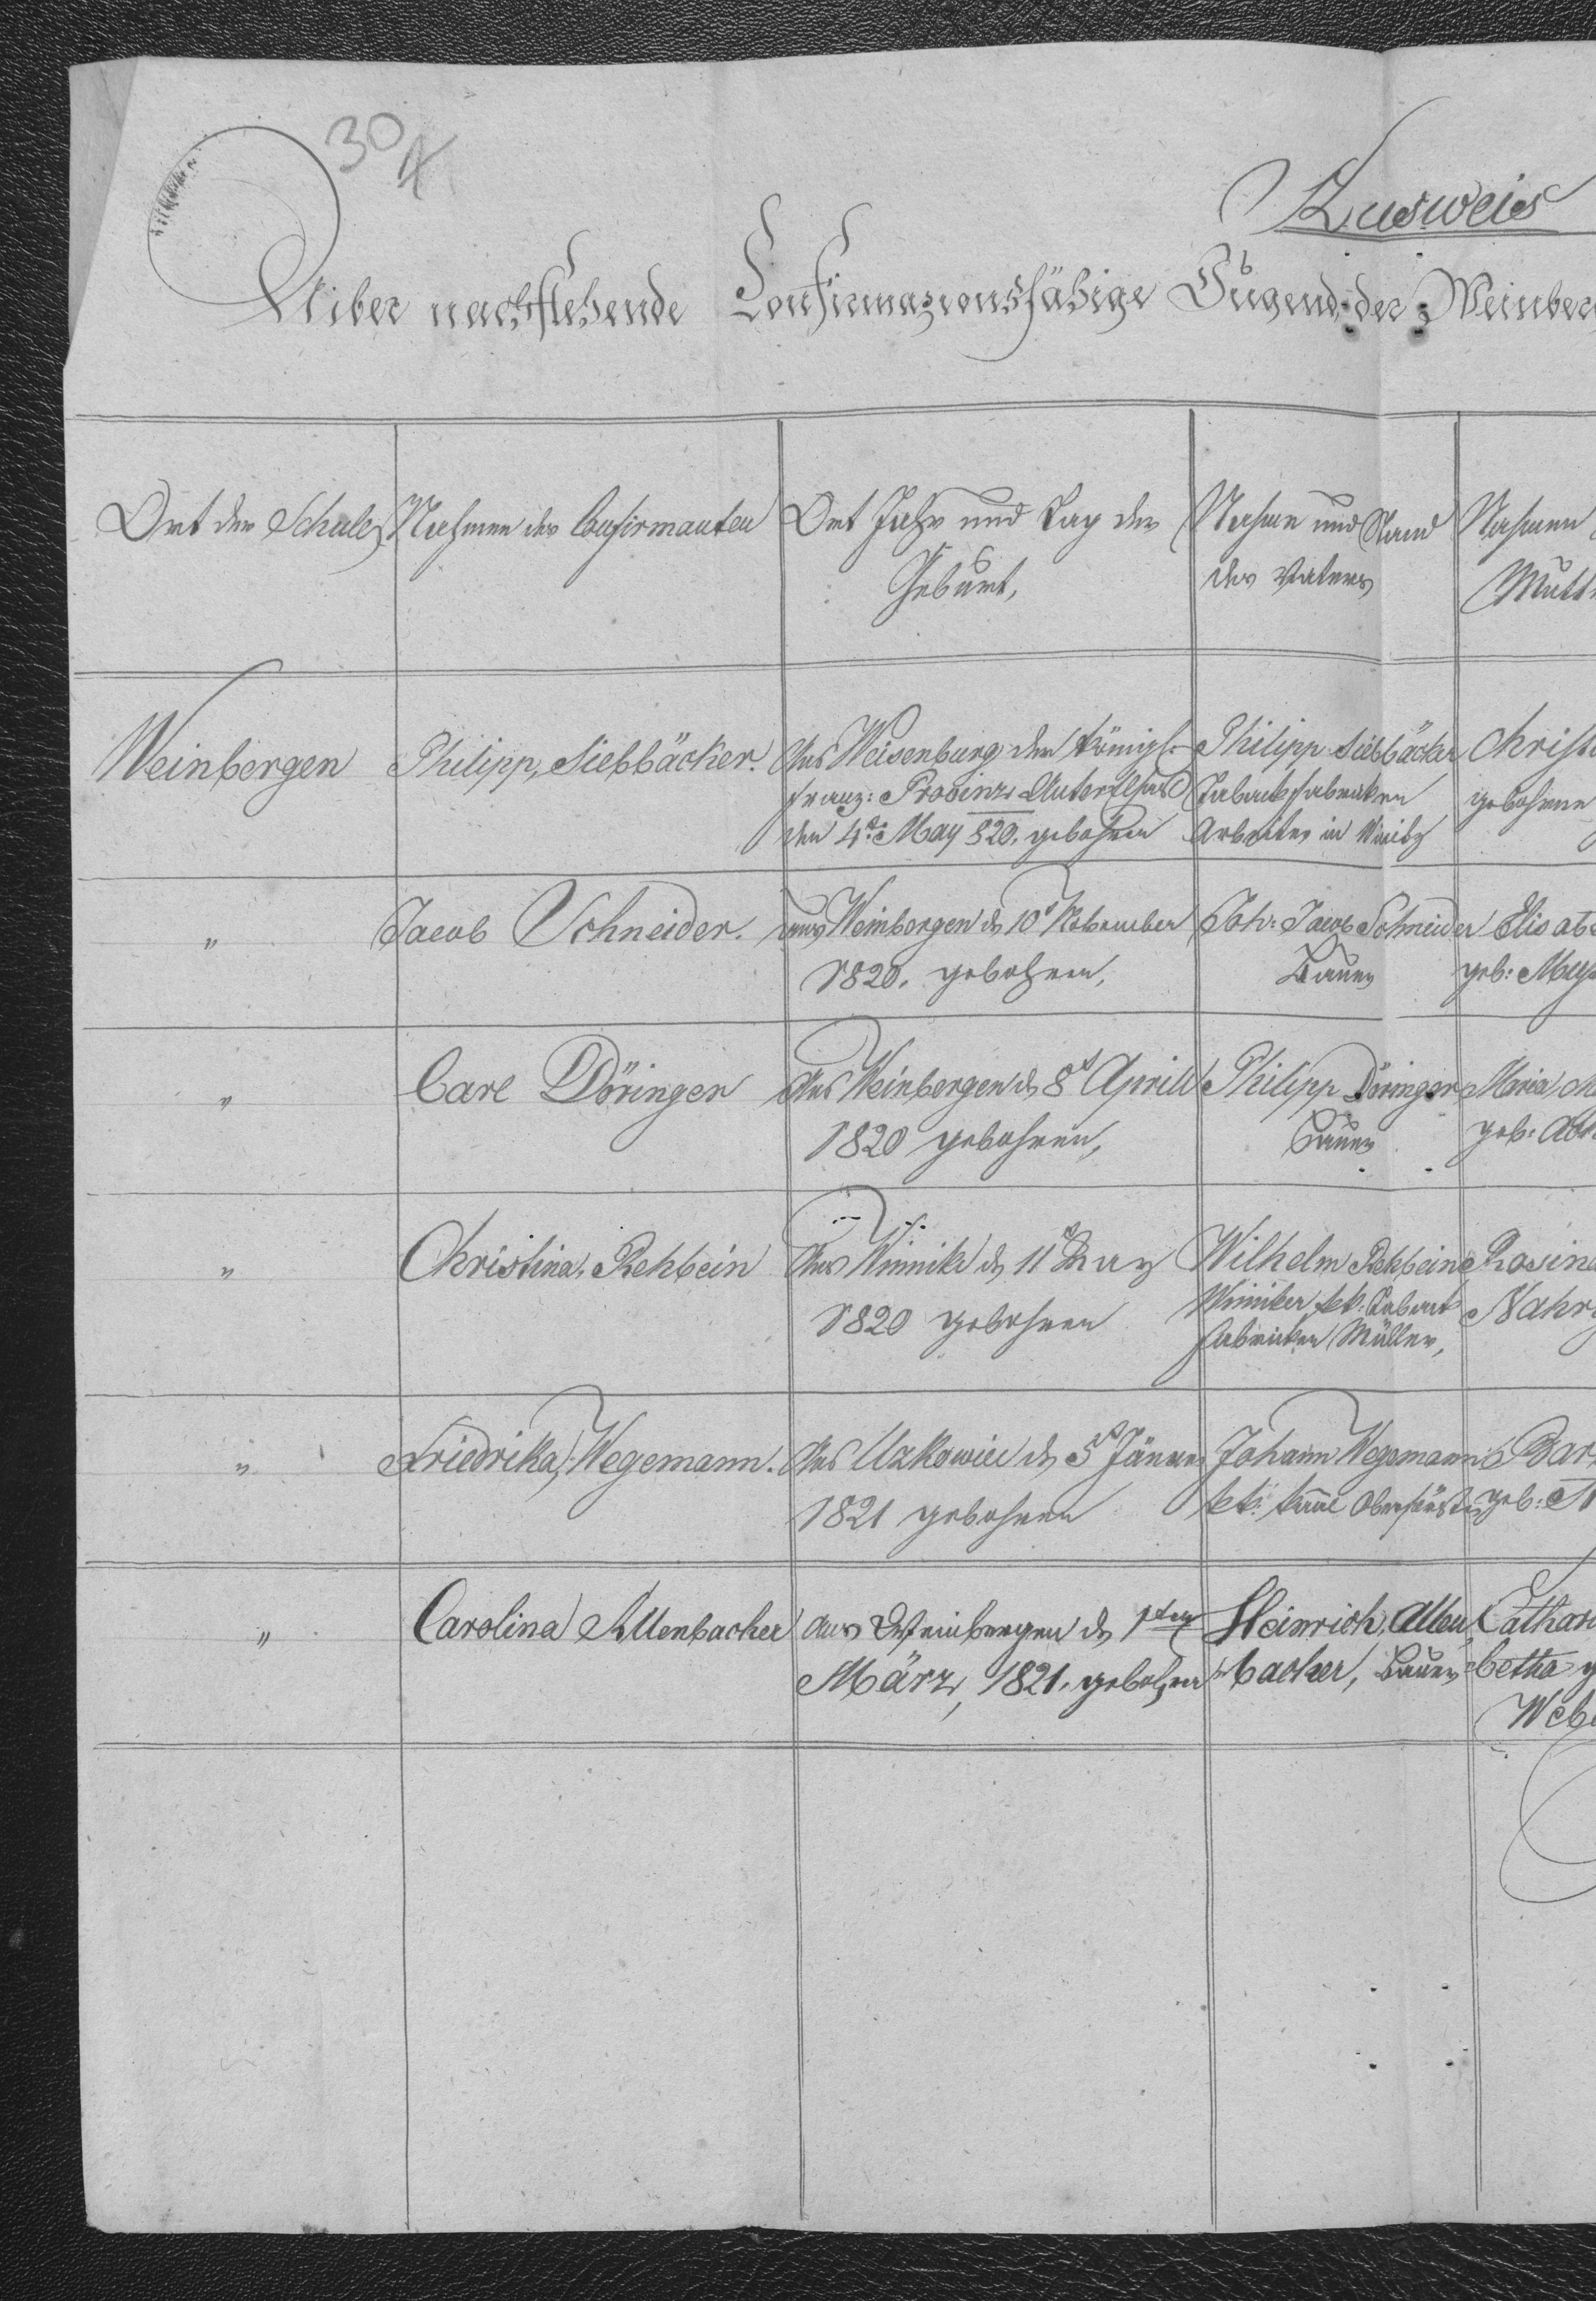 30
4
Ausweis
Uiber nachstehende Confirmazionsfähige Jugend der Weinber
Ort der Schule
Nahmen der Confirmanten
Ort Jahr und Tag der
Geburt,
Nahme und Stand
des Vaters
Nahmen
Mutt
Weinbergen
Philipp, Siebbäcker.
Aus Weisenburg der königl.
franz: Provinz Unterelsas
den 4ten May 820. gebohren
Philipp Siebbäcker
Tabackfabriken
Arbeiter in
Christ
gebohrne
"
Jacob Schneider.
aus Weinbergen d 10t November
1820. gebohren,
Joh: Jacob Schneider
Bauer
Elisabe
geb:
"
Carl Döringer
Aus Weinbergen d 8t Aprill
1820 gebohren,
Philipp Döringer
Bauer
Maria
geb:
"
Christina, Rehbein
Aus Winniki d 11t May
1820 gebohren
Wilhelm Rehbein
Winniker kk: Taback
fabricken Müller,
Rosina
"
Friedrika, Wegemann.
Aus Uzkowice d 5t Jänner
1821 gebohren
Johann Wegemann
kk: Oberförster
Bar
geb:
"
Carolina Allenbacher
aus Weinbergen d 1ten
März, 1821. gebohren
Heinrich, Allen
bacher, Bauer
Cathar
betha g
Webe